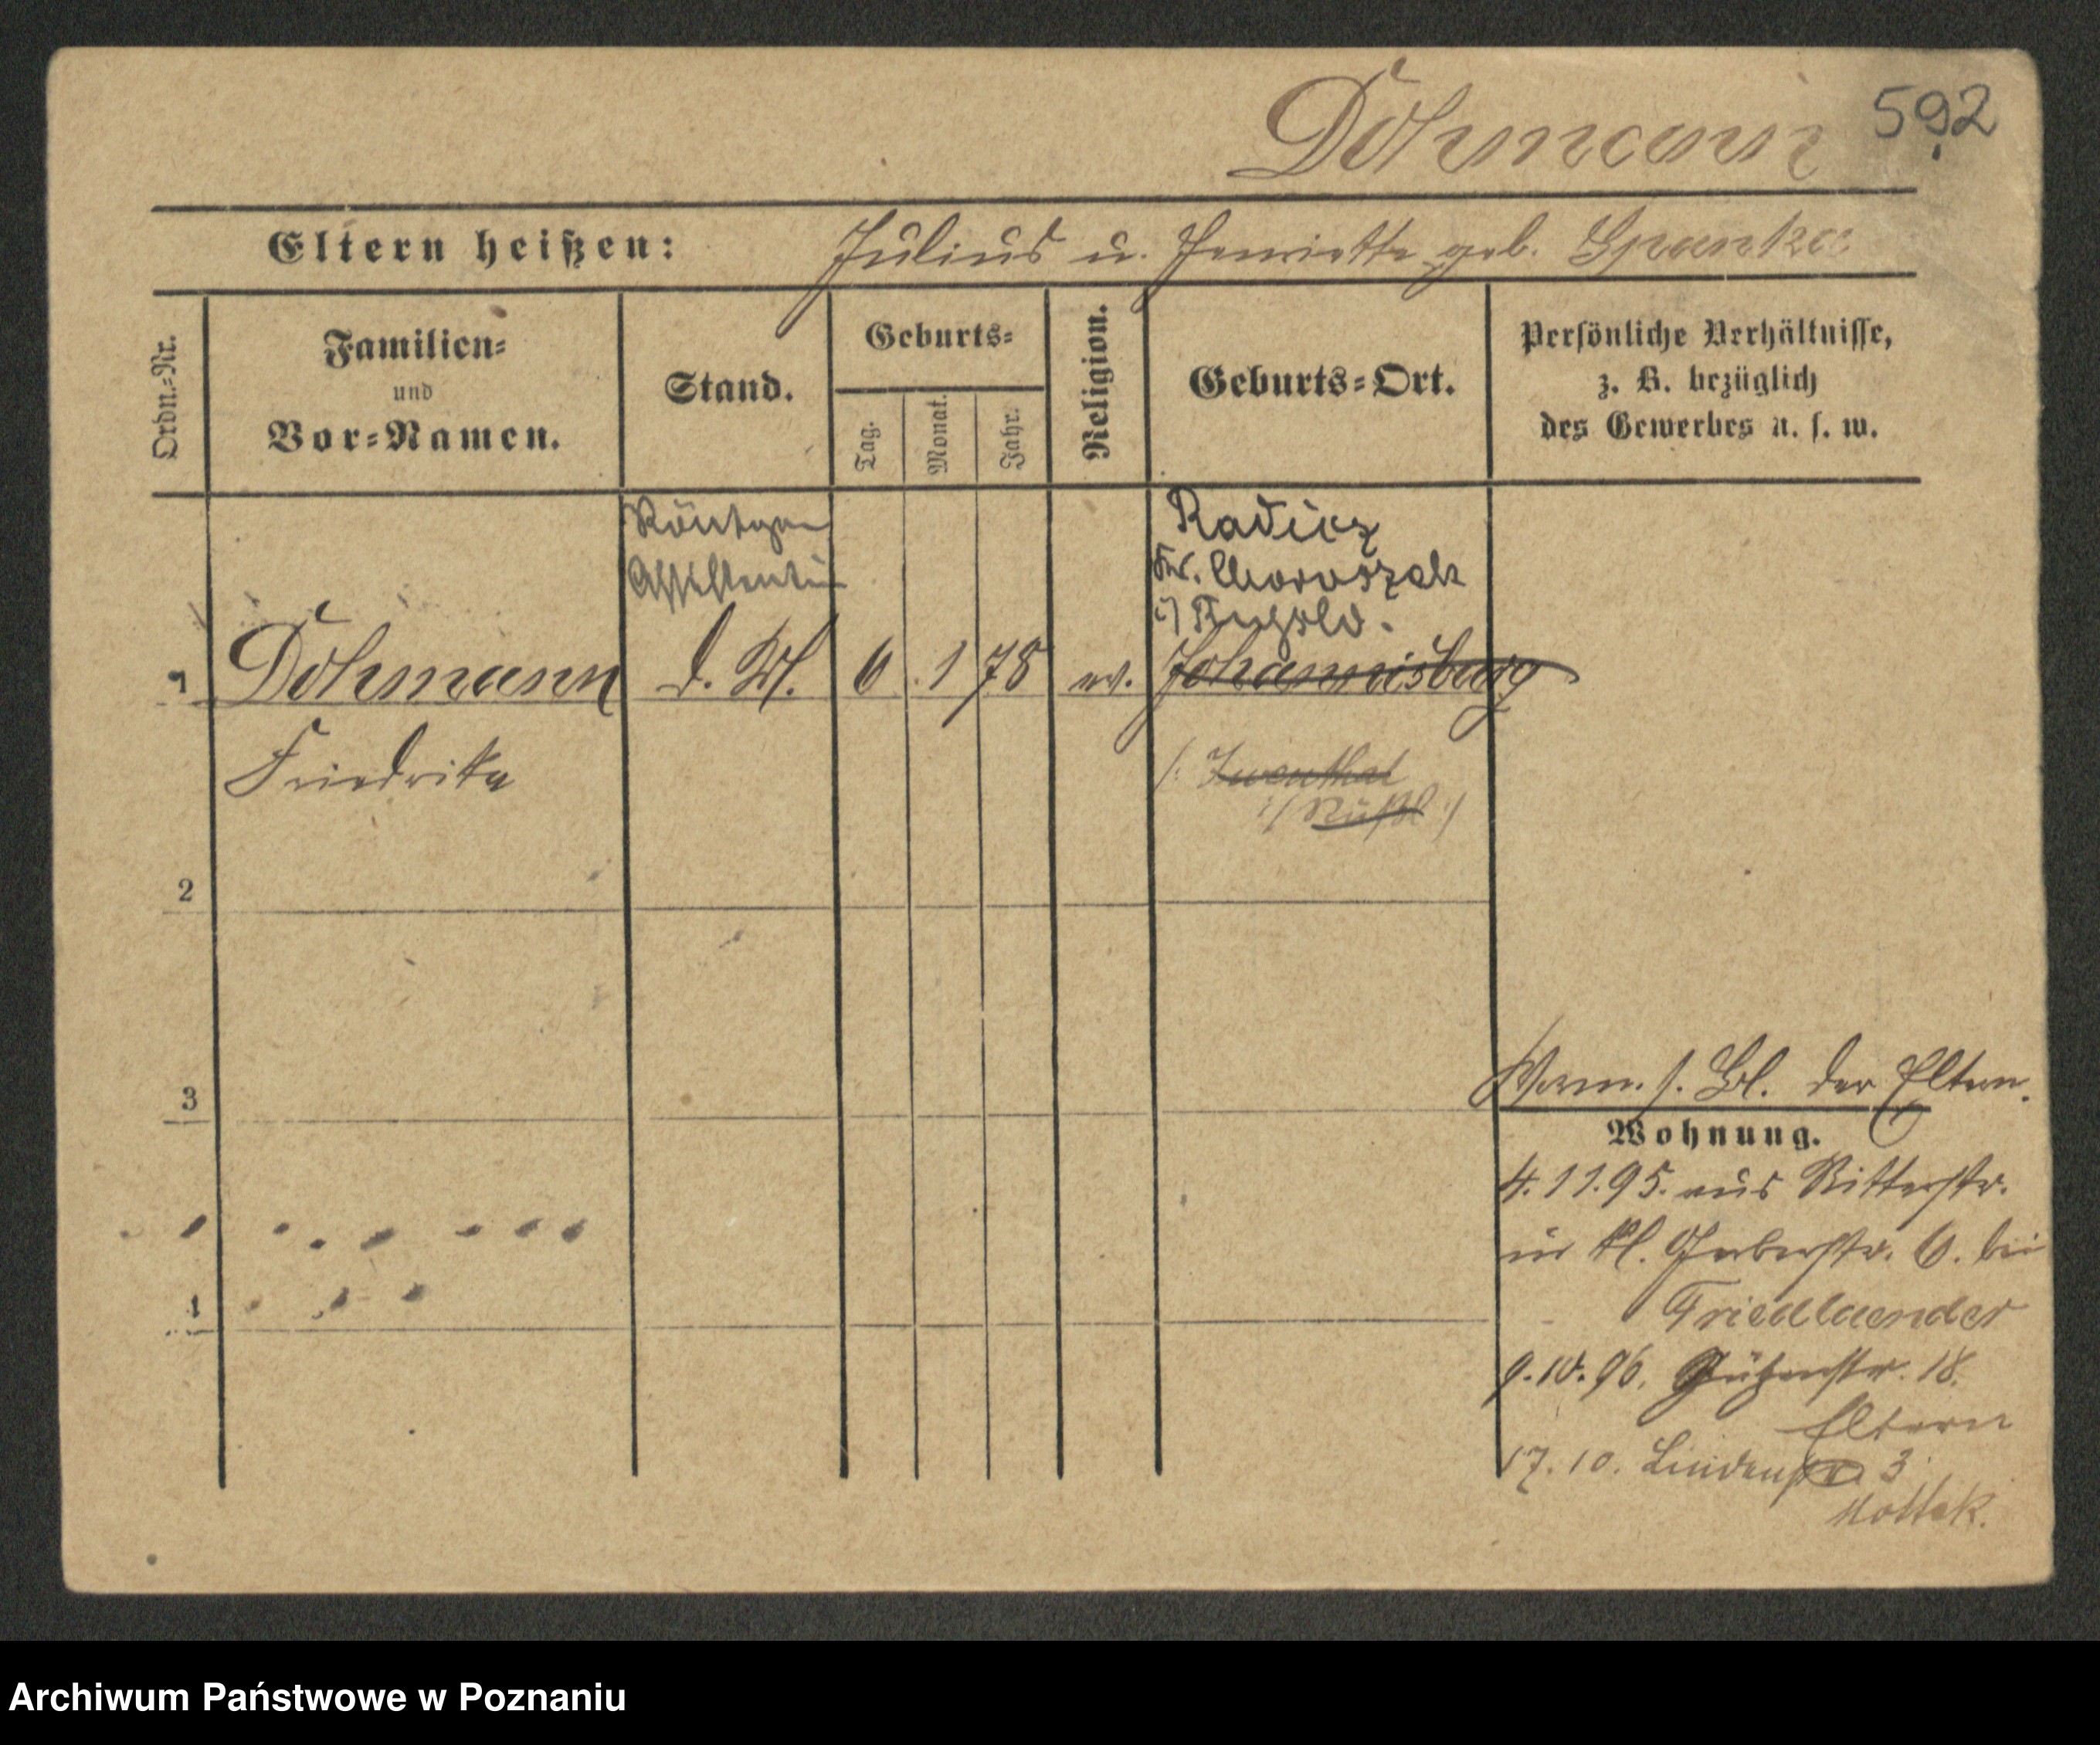 592
Döhmann
Eltern heißen: Julius u. Henriette geb. Spanka
Ordn.-Nr.
Familien-
und
Vor-Namen.
Stand.
Geburts-
Tag.
Monat.
Jahr.
Religion.
Geburts-Ort.
Persönliche Verhältnisse,
z. B. bezüglich
des Gewerbes u. s. w.
Röntgen
Assistentin
Radicz
Kr.
1 Döhmann d. Bl. 6 1 78 ev. Johannisburg
Friedrike
2
3
4
Verm. s. Bl. der Eltern.
Wohnung.
4.11.95. aus Ritterstr.
in kl. Gerberstr. 6. bei
Friedlaender
9.10.96. 18.
Eltern
17.10. Lindenstr. 3
Mottek.
Archiwum Państwowe w Poznaniu